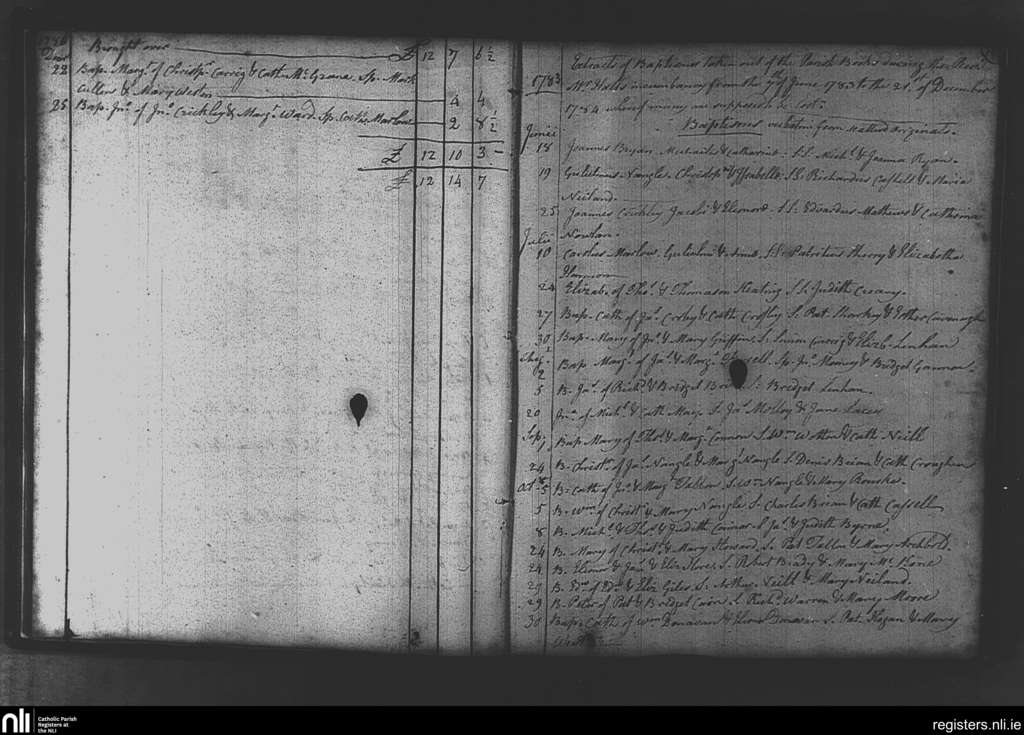 Brought over £ 12 7 6½
22 Bap. Marg.t of Christ.r Corrig & Cath. McGrane Sp. Mark
Cullen & Mary 4 4
25 Bap. Jn.o of Jn.o Crickley & Marg.t Ward Sp. Marlow 2 8½
£ 12 10 3 -
£ 12 14 7
Extracts of Baptisms taken out of the Parish Books during the Rev.d
1783 Mr. incumbency from the 7th of June 1783 to the 21st of December
1784 where many are supposed to be lost.
Baptisms verbatim from scattered originals.
Junii
18 Joannes Bryan Michaelis & Catharinae: S.S. Mich.l & Joanna Ryan.
19 Gulielmus Nangle. Christop. & Isabella: SS. Richardus Cassell & Maria
Neiland.
25 Joannes Jacobi & Eleonora. S.S. Edvardus Mathews & Catherina
Julii Nowlan.
10 Carolus Marlow. Gulielmi & S.S. Patritius Thorny & Elizabetha
24 Elizab. of Tho.s & Thomason Keating S.S. Judith Creany.
27 Bap. Cath of Ja.s Corby & Cath Crosby S. Pat. Sharkey & Esther Cavenagh
30 Bap. Mary of Jn.o & Mary Griffin. S. Simon Corrig & Eliz. Lenhan
Aug.
2 Bap. Marg.t of Ja.s & Marg.t Sp. Jn.o & Bridget Gannon.
5 B. Ja.s of Rich.d & Bridget S. Bridget Lenhan.
20 Jn.o of Mich.l & Cath Mary S. Ja.s Molloy & Jane Lacey
Sep. 1 Bap Mary of Tho.s & Marg.t Connor S. Wm. & Cath Neill
24 B. Christ.r of Ja.s Nangle & Marg.t Nangle S. Denis Brian & Cath Croughan
Oct. 5 B. Cath of Jn.o & Marg.t Fallon S. Wm. Nangle & Mary Rourke.
5 B. Wm. of Christ.r & Mary Nangle S. Charles Brean & Cath Cassell
8 B. Mich.l of Tho.s & Judith Connor S. Ja.s & Judith Byrne.
24 B. Mary of Christ.r & Mary Howard S. Pat Fallon & Mary Archbold.
24 B. Elinor of Jam.s & Eliz S. Robert Brady & Mary
29 B. Edw. of Edw. & Eliz Giles S. Arthur Neill & Mary Neiland.
29 B. Peter of Pat & Bridget S. Rich.d Warren & Mary Moore
30 Bap. Cath of Wm Donavan & Donavan S. Pat. Hagan & Mary
nli
Catholic Parish
Registers at
the NLI
registers.nli.ie